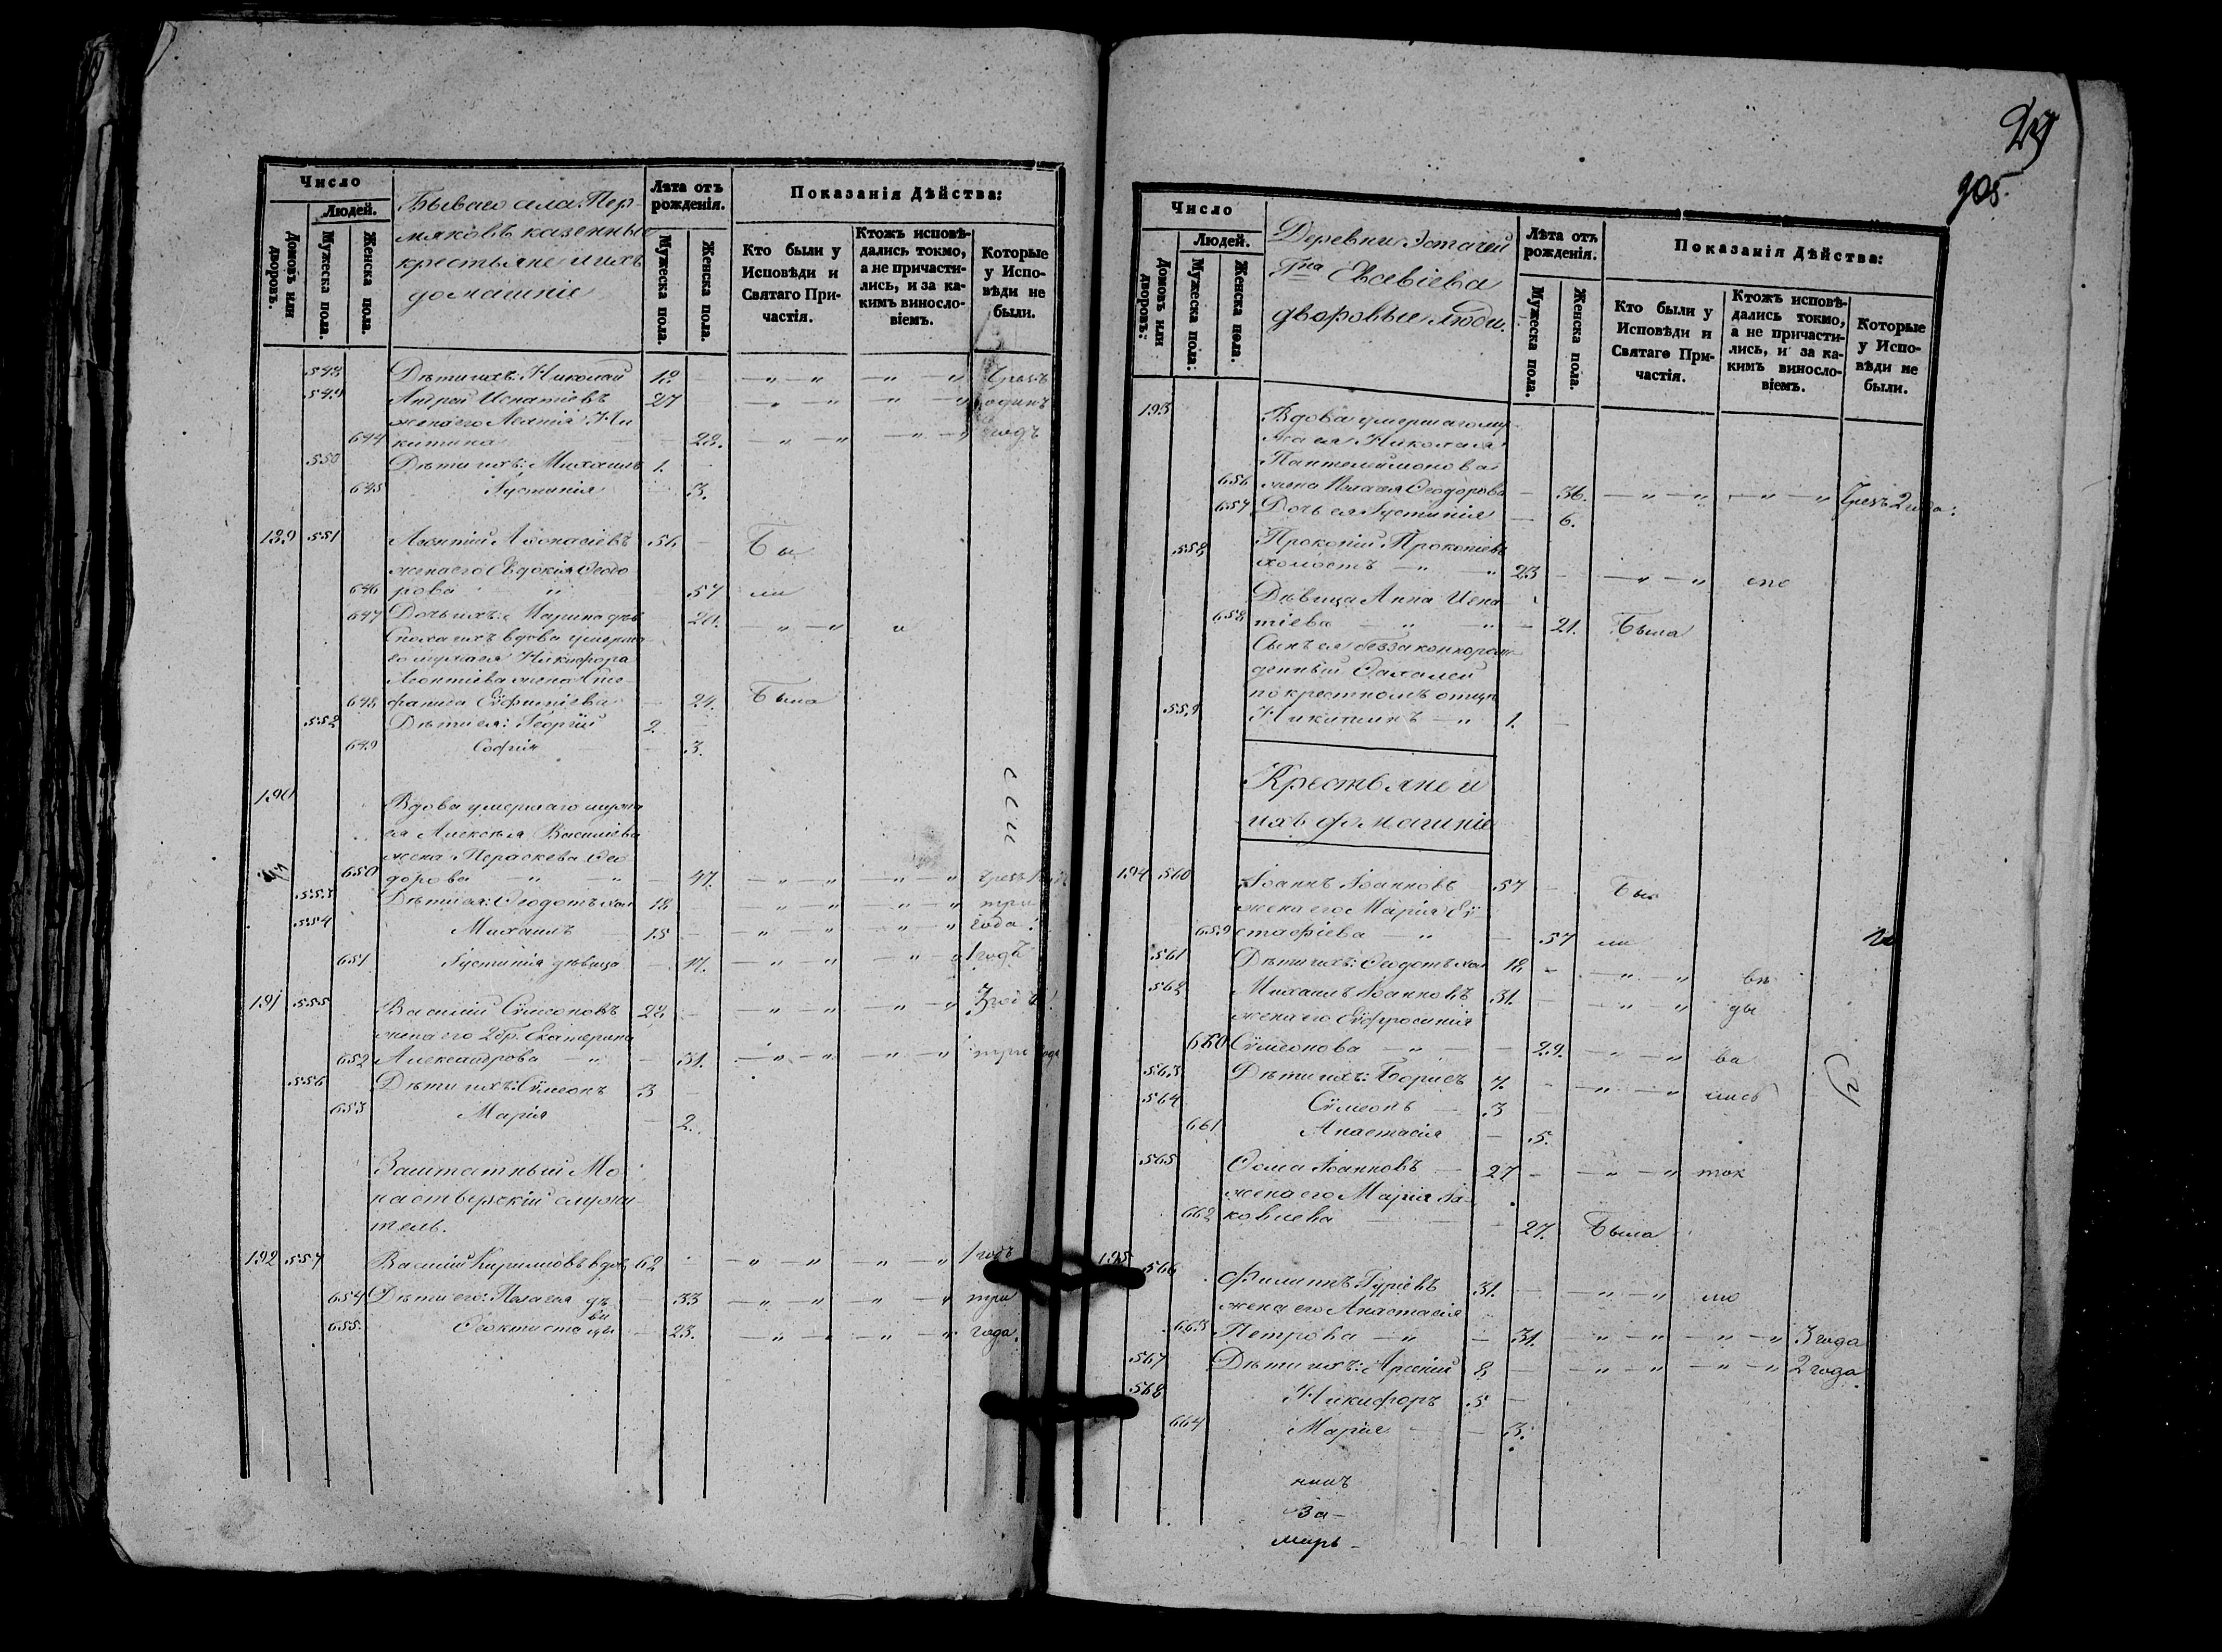 27
905.
Число
Людей.
Домовъ или дворовъ.
Мужеска пола.
Женска пола.
Бывшаго села Пер-
мяковъ казенные
крестьяне и ихъ
домашніе
Лѣта отъ рожденія.
Мужеска пола.
Женска пола.
Показанія Дѣйства:
Кто были у Исповѣди и Святаго При-частія.
Ктожъ исповѣ-дались токмо, а не причасти-лись, и за ка-кимъ винословіемъ.
Которые у Испо-вѣди не были.
548 Дѣти ихъ: Николай 12 — „ — „ — „ — „ Чрезъ
549 Андрей Игнатіевъ 27 — „ — „ — „ — „ одинъ
жена его Ни
644 китина 28. — „ — „ — „ — „ годъ
550 Дѣти ихъ: Михаилъ 1.
645 Іустинія 3.
189 551 Леонтій Аѳонасіевъ 56 — Бы
жена его Евдокія Ѳеодо
646 рова „ 57 ли
647 Дочь ихъ: Марина 20. — „ — „
Сноха ихъ вдова умерша
го мужа ея Никифора
Леонтіева жена Сте
648 фанида 24. Была
552 Дѣти ея: Георгій 2.
649 Софія 3.
190 Вдова умершаго мужа
ея Алексѣя Василіева
жена Параскева Ѳео
650 дорова — „ — „ — 47. — „ — „ — „ — „ Чрезъ
553 Дѣти ея: Ѳеодотъ хол 18 — „ — „ — „ — „ три
554 Михаилъ 15 — „ — „ — „ — „ года:
651 Іустинія дѣвица 17. — „ — „ — „ — „ 1 годъ
191 555 Василій Сѵмеоновъ 28 — „ — „ — „ — „ 3 года
жена его 2 бр. Екатерина
652 Александрова — „ — 31. — „ — „ — „ — „ три года
556 Дѣти ихъ: Сѵмеонъ 3 —
653 Марія — 2.
Заштатный Мо
настырскій служи
тель.
192 557 Василій Кириловъ вдов 62 — „ — „ — „ — „ 1 годъ
654 Дѣти его: Пелагея дѣ — 33 — „ — „ — „ — „ три
655. Ѳеоктиста ви цы — 23. — „ — „ — „ — „ года.
Число
Людей.
Домовъ или дворовъ:
Мужеска пола:
Женска пола.
Деревни Эстачей
Гна Евсевіева
дворовые люди.
Лѣта отъ рожденія.
Мужеска пола.
Женска пола.
Показанія Дѣйства:
Кто были у Исповѣди и Святаго При-частія.
Ктожъ исповѣ-дались токмо, а не причасти-лись, и за ка-кимъ винословіемъ.
Которые у Испо-вѣди не были.
193 Вдова умершаго му
жа ея Николая
Пантелеимонова
656 жена Пелагея Ѳеодорова — 36. — „ — „ — „ — „ Чрезъ 2 года:
657 Дочь ея Іустинія — 6.
558 Прокопій Прокопіевъ
холостъ — „ — „ 23 — „ — „ спо
Дѣвица Анна Игна
658 тіева — „ — „ — 21. Была
Сынъ ея беззаконнорож
денный
по крестномъ отцѣ
559 Никитинъ — „ 1. —
Крестьяне и
ихъ домашніе
194 560 Іоаннъ Іоанновъ 57 — Бы
жена его Марія Еѵ
659 стафіева — „ — 57 ли
561 Дѣти ихъ: Ѳеодотъ хол 18 — „ — „ вѣ
562 Михаилъ Іоанновъ 31. — „ — „ ды
жена его Еѵфросинія
660 Сѵмеонова — „ — 29. — „ — „ ва
563 Дѣти ихъ: Борисъ 7. — „ — „ лись
564 Сѵмеонъ 3
661 Анастасія — 5.
565 Ѳома Іоанновъ — 27 — „ — „ ток
жена его Марія Іа
662 ковлева — 27. Была
195 566 Филиппъ Гуріевъ 31. — „ — „ мо
жена его Анастасія
663 Петрова — „ — 31. — „ — „ — „ — „ 3 года
567 Дѣти ихъ: Арсеній 8 — „ — „ — „ — „ 2 года
568 Никифоръ 5 —
664 Марія — 3.
За-